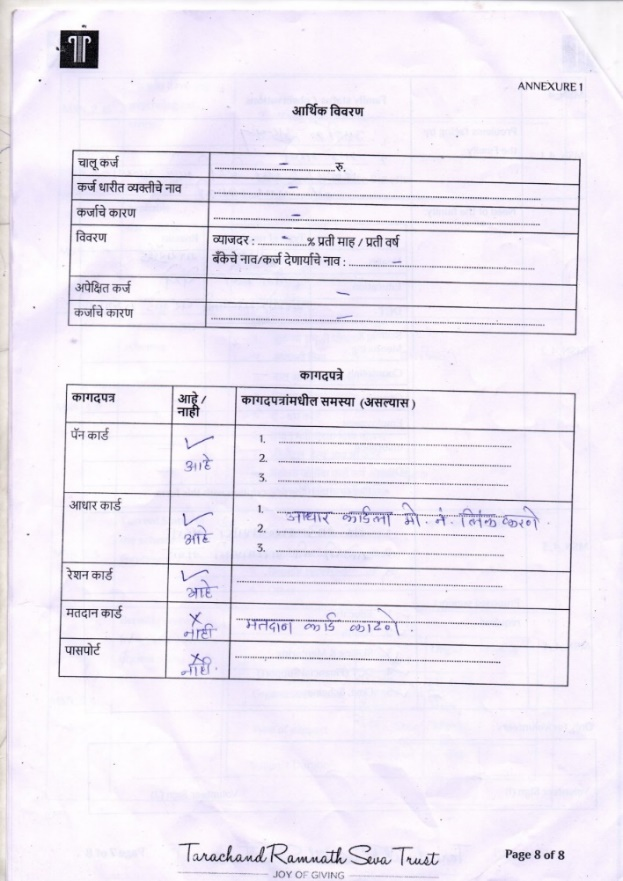 ANNEXURE 1
आर्थिक विवरण
चालू कर्ज - रु.
कर्ज धारीत व्यक्तीचे नाव -
कर्जाचे कारण -
विवरण व्याजदर : - % प्रती माह / प्रती वर्ष
बँकेचे नाव/कर्ज देणार्याचे नाव : -
अपेक्षित कर्ज -
कर्जाचे कारण -
कागदपत्रे
कागदपत्र आहे / नाही कागदपत्रांमधील समस्या (असल्यास)
पॅन कार्ड ✓ आहे 1.
2.
3.
आधार कार्ड ✓ आहे 1. आधार कार्डला मो. नं. लिंक करणे.
2.
3.
रेशन कार्ड ✓ आहे
मतदान कार्ड X नाही मतदान कार्ड काढणे.
पासपोर्ट X नाही.
Tarachand Ramnath Seva Trust
JOY OF GIVING
Page 8 of 8